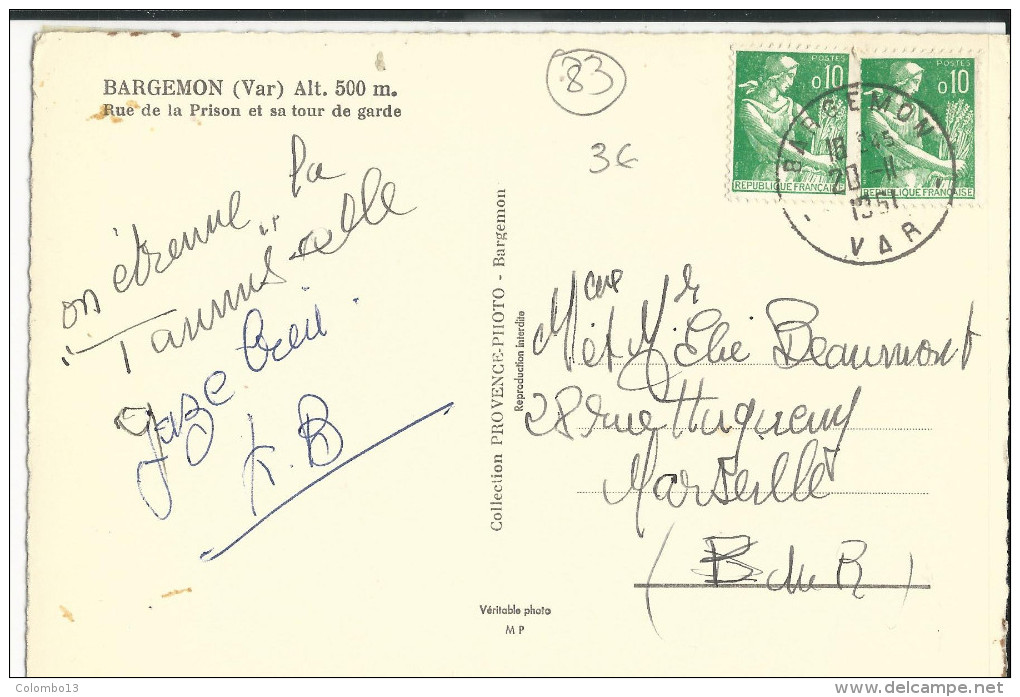 BARGEMON (Var) Alt. 500 m.
Rue de la Prison et sa tour de garde
83
3€
POSTES
0,10
REPUBLIQUE FRANCAISE
POSTES
0,10
REPUBLIQUE FRANCAISE
BARGEMON
18 45
20 -11
1961
VAR
on étrenne la
"Taunus" elle
gaze bien.
K.B
Collection PROVENCE-PHOTO - Bargemon
Reproduction interdite
Mme et Mr Elie Beaumont
28 rue Hugueny
Marseille
(B du R)
Véritable photo
MP
Colombo13
delcampe.net